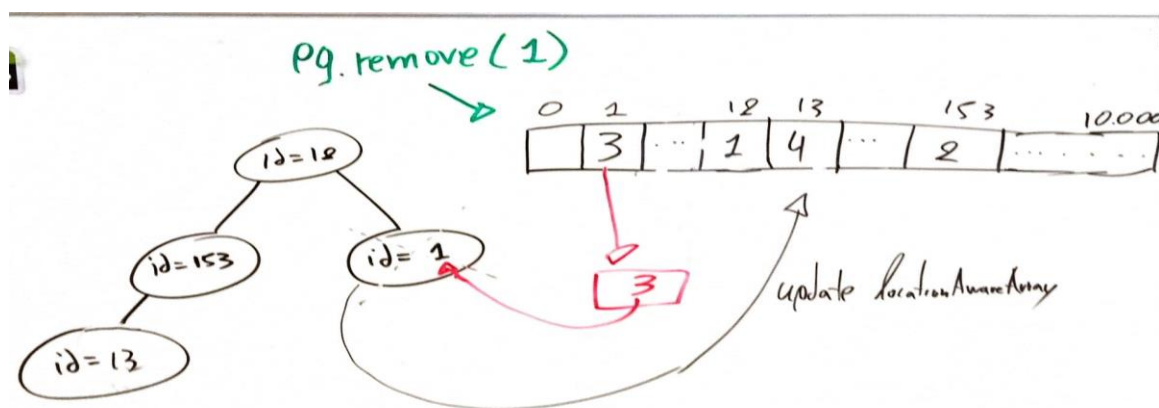 PQ.remove(1)
0 1 12 13 153 10.000
3 ... 1 4 ... 2 .......
id=12
id=153
id= 1
3
update locationAwareArray
id=13